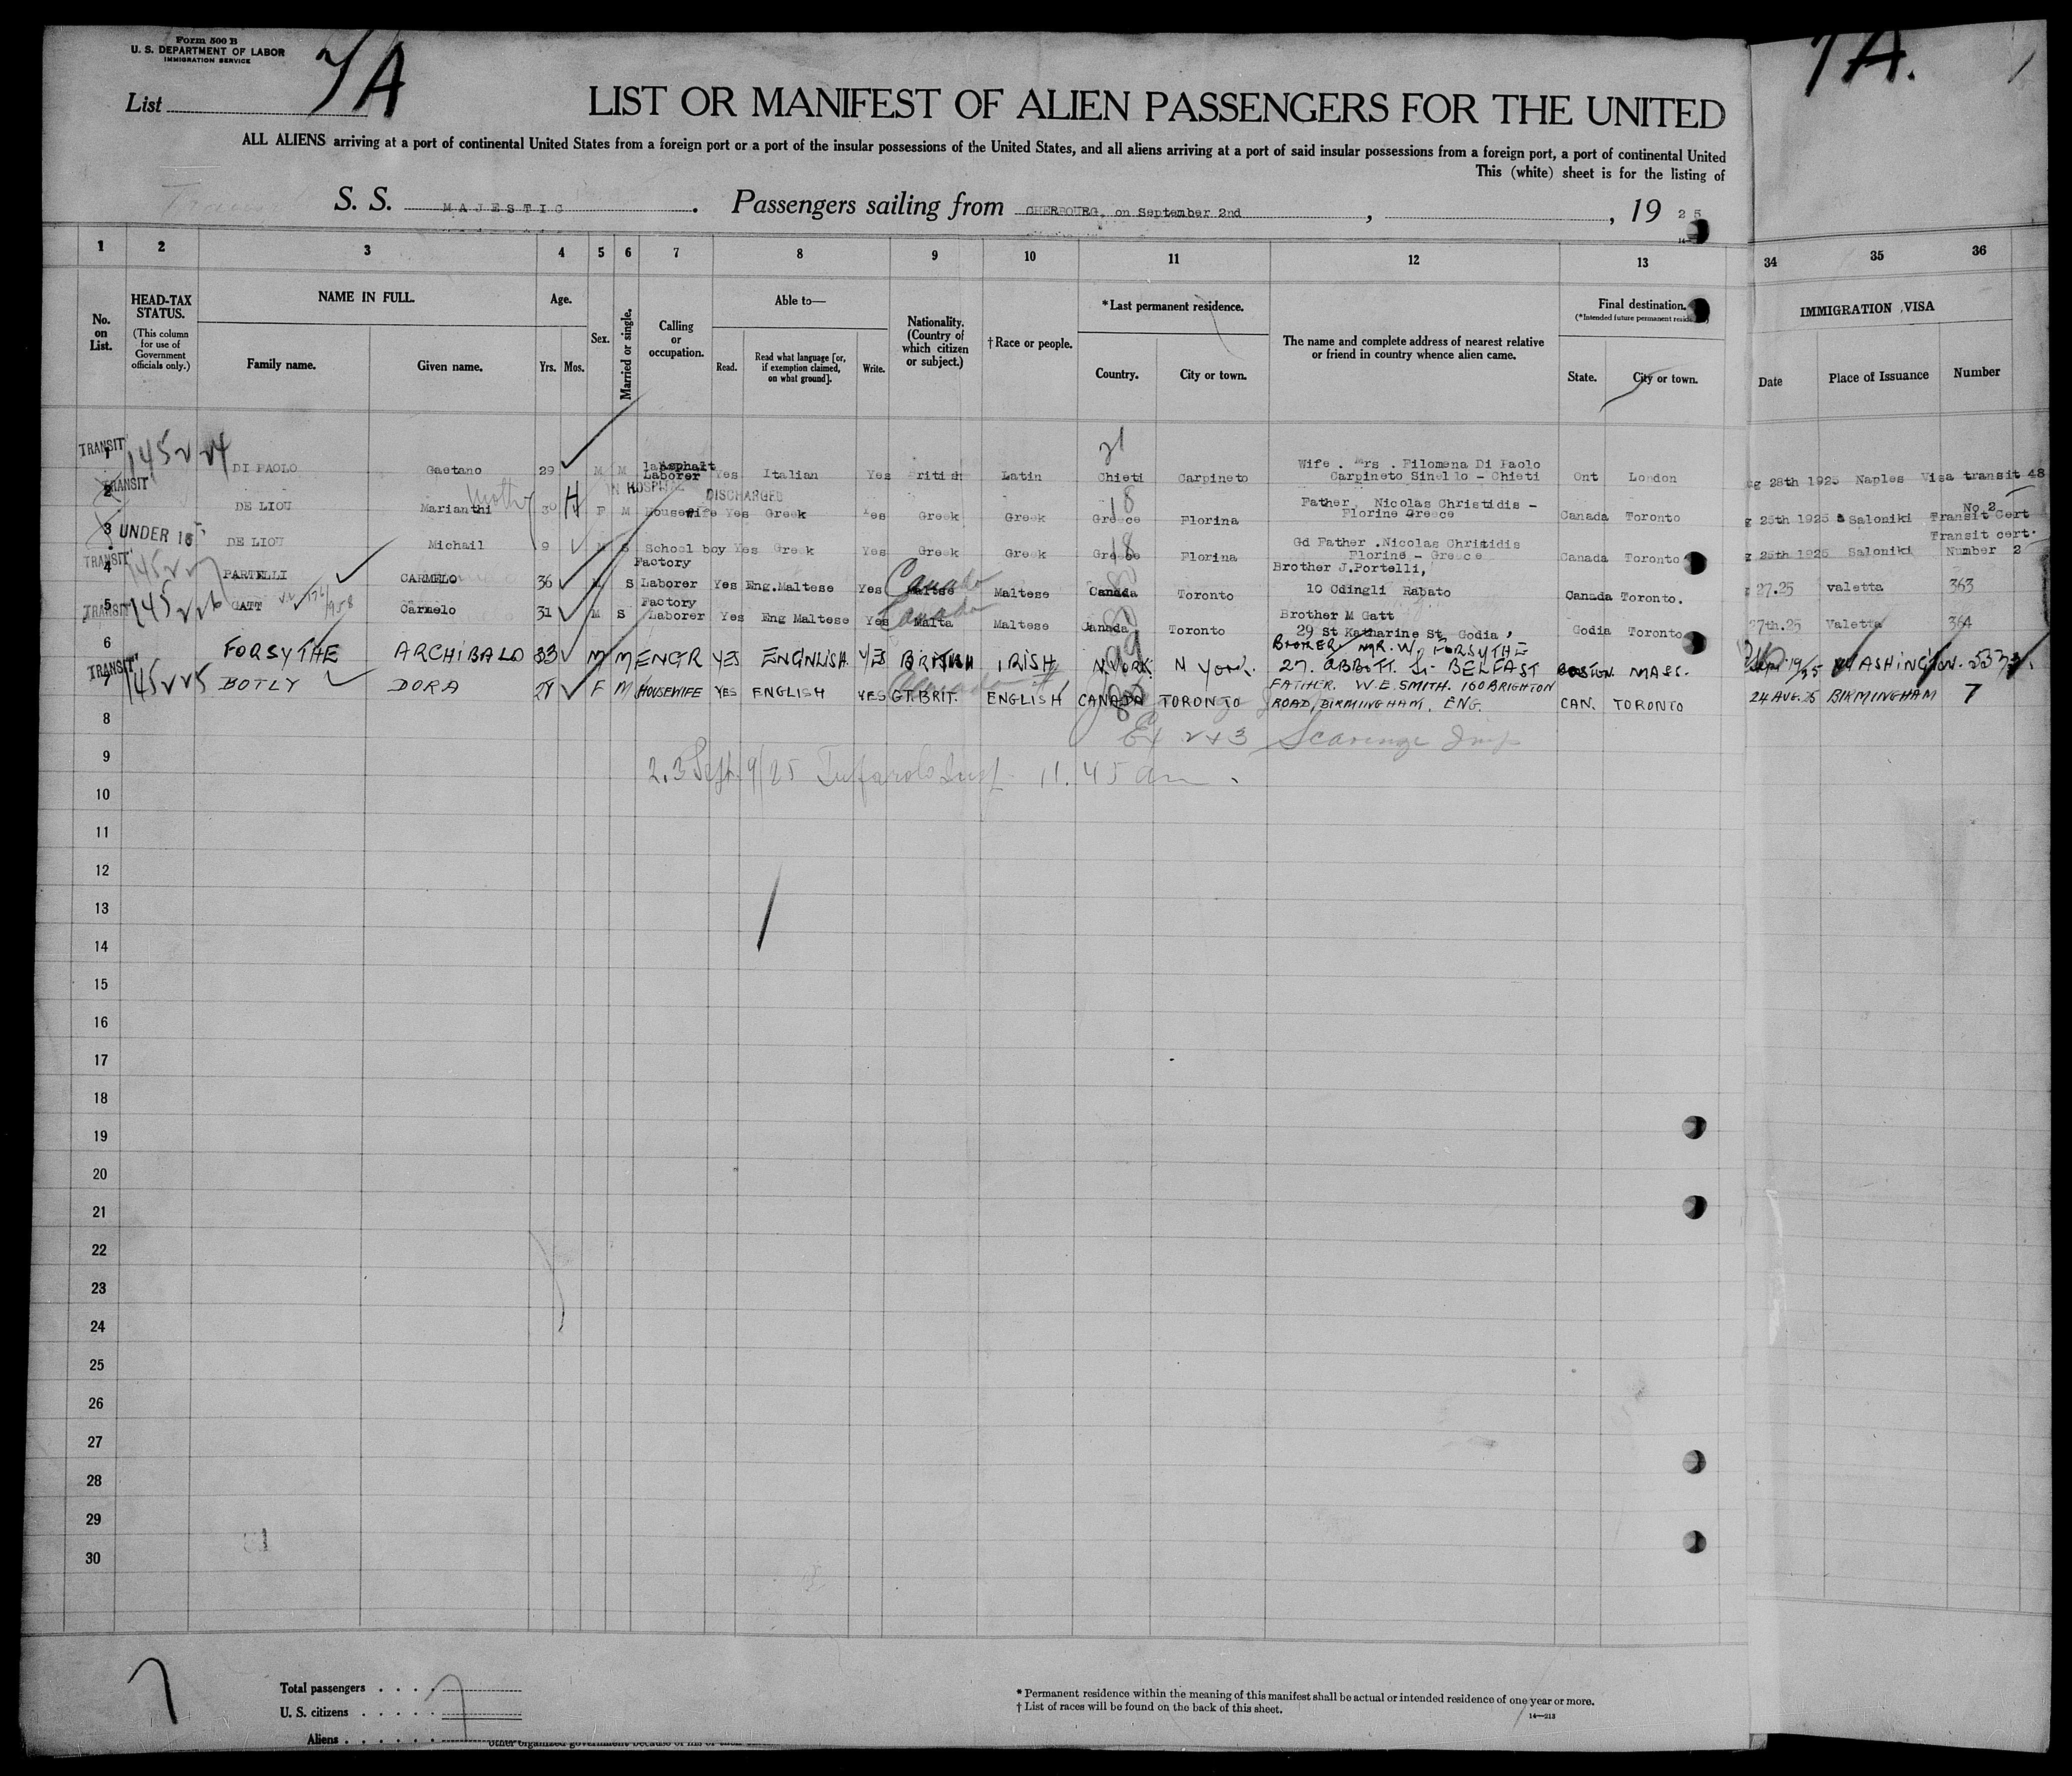 Form 500 B
U. S. DEPARTMENT OF LABOR
IMMIGRATION SERVICE
List 7A
7A.
LIST OR MANIFEST OF ALIEN PASSENGERS FOR THE UNITED
ALL ALIENS arriving at a port of continental United States from a foreign port or a port of the insular possessions of the United States, and all aliens arriving at a port of said insular possessions from a foreign port, a port of continental United
This (white) sheet is for the listing of
S. S. MAJESTIC. Passengers sailing from CHERBOURG, on September 2nd, , 19 25
1 2 3 4 5 6 7 8 9 10 11 12 13 34 35 36
No. on List.
HEAD-TAX STATUS.
(This column for use of Government officials only.)
NAME IN FULL.
Family name. Given name.
Age.
Yrs. Mos.
Sex.
Married or single.
Calling or occupation.
Able to—
Read. Read what language [or, if exemption claimed, on what ground]. Write.
Nationality. (Country of which citizen or subject.)
† Race or people.
*Last permanent residence.
Country. City or town.
The name and complete address of nearest relative or friend in country whence alien came.
Final destination.
(*Intended future permanent
State. City or town.
IMMIGRATION VISA
Date Place of Issuance Number
TRANSIT 1 DI PAOLO Gaetano 29 M M asphalt Laborer Yes Italian Yes British Latin 21 Chieti Carpineto Wife . Mrs . Filomena Di Paolo Carpineto Sinello - Chieti Ont London 28th 1925 Naples Visa transit 48
TRANSIT 2 DE LIOU Marianthi Mother 30 H IN HOSPITAL DISCHARGED F M Housewife Yes Greek Yes Greek Greek 18 Greece Florina Father . Nicolas Christidis - Florine Greece Canada Toronto 25th 1925 Saloniki No 2 Transit Cert
3 UNDER 16 DE LIOU Michail 9 M S School boy Yes Greek Yes Greek Greek 18 Greece Florina Gd Father .Nicolas Christidis Florine - Greece Canada Toronto 25th 1925 Saloniki Transit cert. Number 2
TRANSIT 4 PARTELLI CARMELO 36 M S Factory Laborer Yes Eng.Maltese Yes Maltse Canada Maltese Canada Toronto Brother J.Portelli, 10 Cdingli Rabato Canada Toronto. 27.25 valetta 363
TRANSIT 5 GATT Carmelo 31 M S Factory Laborer Yes Eng Maltese Yes Malta Canada Maltese Canada Toronto Brother M Gatt 29 St Katharine St Godia Godia Toronto 27th.25 Valetta 364
6 FORSYTHE ARCHIBALD 33 M M ENGR YES ENGNLISH YES BRITISH IRISH N.YORK. N York. BROTHER MR. W. FORSYTHE 27. ABBOTT. St. BELFAST BOSTON MASS. WASHINGTON.
TRANSIT 7 BOTLY DORA F M HOUSEWIFE YES ENGLISH YES GT. BRIT. ENGLISH CANADA TORONTO FATHER. W.E. SMITH. 160 BRIGHTON ROAD, BIRMINGHAM, ENG. CAN. TORONTO 24 AUG. 25 BIRMINGHAM 7
8
9 2.3 Sept. 9/25 11.45 am.
10
11
12
13
14
15
16
17
18
19
20
21
22
23
24
25
26
27
28
29
30
7
Total passengers . . . . 7
U. S. citizens . . . . .
Aliens . . . . . .
* Permanent residence within the meaning of this manifest shall be actual or intended residence of one year or more.
† List of races will be found on the back of this sheet.
14—213